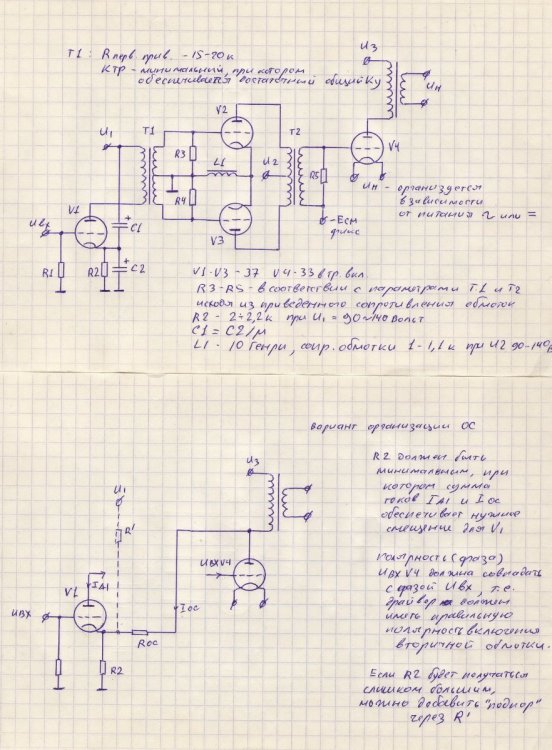 T1: R перв. прив. - 15-20к
Ктр - минимальный, при котором
обеспечивается достаточный общий Ку
U3
Uн
V2
U1
T1
R3
L1
U2
T2
V4
V1
Uвх
R4
R5
C1
V3
-Eсм
фикс
Uн - организуется
взависимости
от питания ~ или =
R1
R2
C2
V1-V3 - 37 V4-33 в тр. вкл.
R3-R5 - в соответствии с параметрами T1 и T2
исходя из приведенного сопротивления обмоток
R2 - 2÷2,2к при U1 = 90~140 вольт
C1 = C2/μ
L1 - 10 Генри, сопр. обмотки 1-1,1к при U2 90-140В
вариант организации ОС
U3
U1
R'
Uвх V4
V1
IA1
Uвх
Iос
Rос
R2
R2 должен быть
минимальным, при
котором сумма
токов IA1 и Iос
обеспечивает нужное
смещение для V1
Полярность (фаза)
Uвх V4 должна совпадать
с фазой Uвх, т.е.
драйвер должен
иметь правильную
полярность включения
вторичной обмотки.
Если R2 будет получаться
слишком большим,
можно добавить "подпор"
через R'